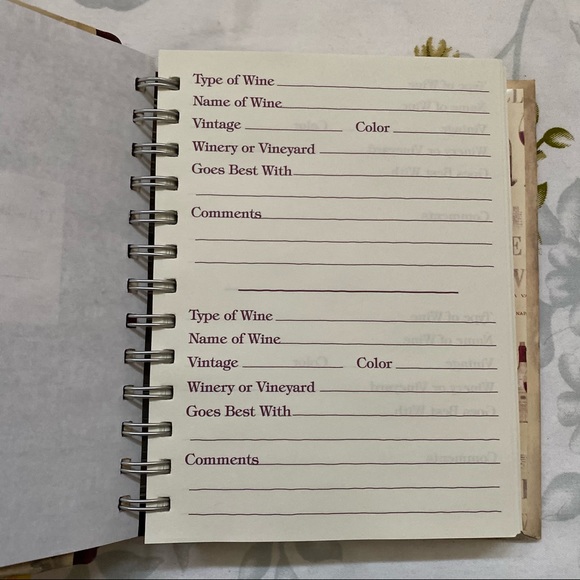 Type of Wine
Name of Wine
Vintage Color
Winery or Vineyard
Goes Best With
Comments
Type of Wine
Name of Wine
Vintage Color
Winery or Vineyard
Goes Best With
Comments